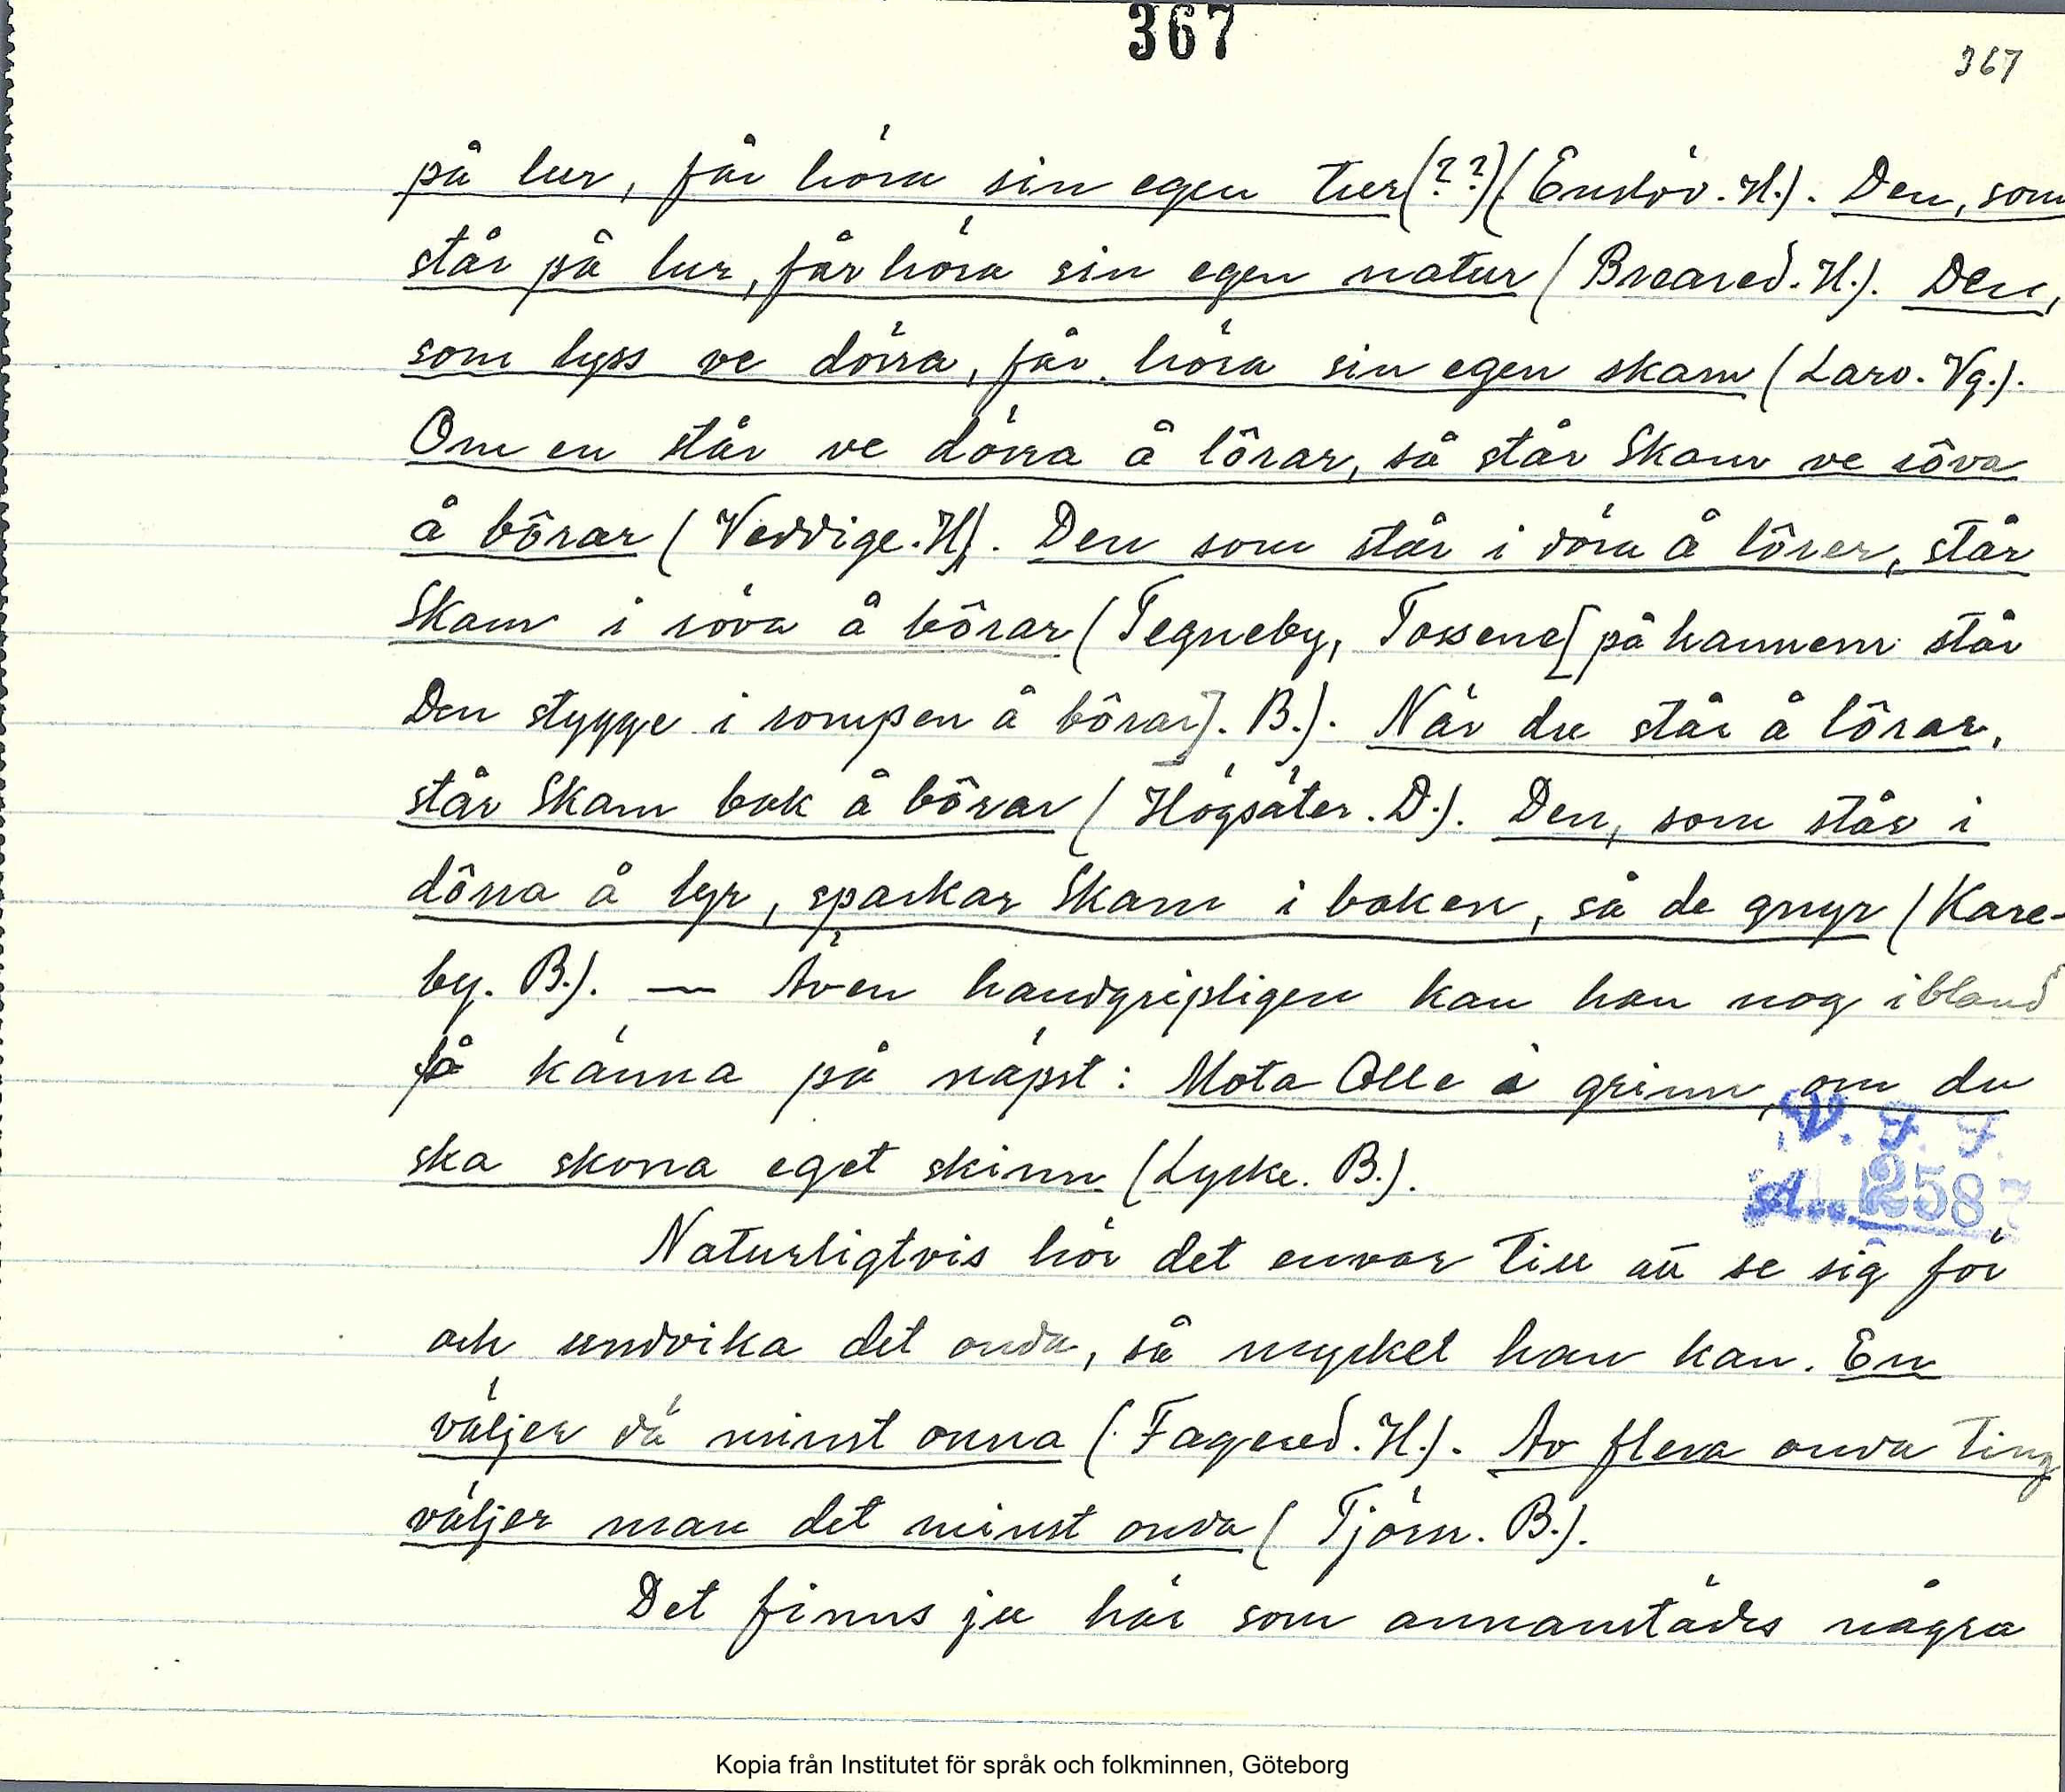 367
367
på lur, får höra sin egen tur(??)(Enslöv. H.). Den, som
står på lur, får höra sin egen natur (Breared. H.). Den,
som lyss ve dörra, får höra sin egen skam (Larv. Vg.).
Om en står ve dörra å lôrar, så står Skam ve röva
å bôrar (Veddige. H). Den som står i döra å lôrer, står
Skam i röva å bôrar (Tegneby, Tossene[på hannem står
Den stygge i rompen å bôrar]. B.). När du står å lôrar,
står Skam bak å bôrar (Högsäter. D.). Den, som står i
dôrra å lyr, sparkar Skam i baken, så de gnyr (Kare-
by. B.). — Även handgripligen kan han nog ibland
få känna på näpst: Mota Olle i grinn, om du
ska skona eget skinn (Lycke. B.).
V. F. F.
Acc. 2587
Naturligtvis hör det envar till att se sig för
och undvika det onda, så mycket han kan. En
väljer dä minst onna (Fagered. H.). Av flera onda ting
väljer man det minst onda (Tjörn. B.).
Det finns ju här som annanstädes några
Kopia från Institutet för språk och folkminnen, Göteborg